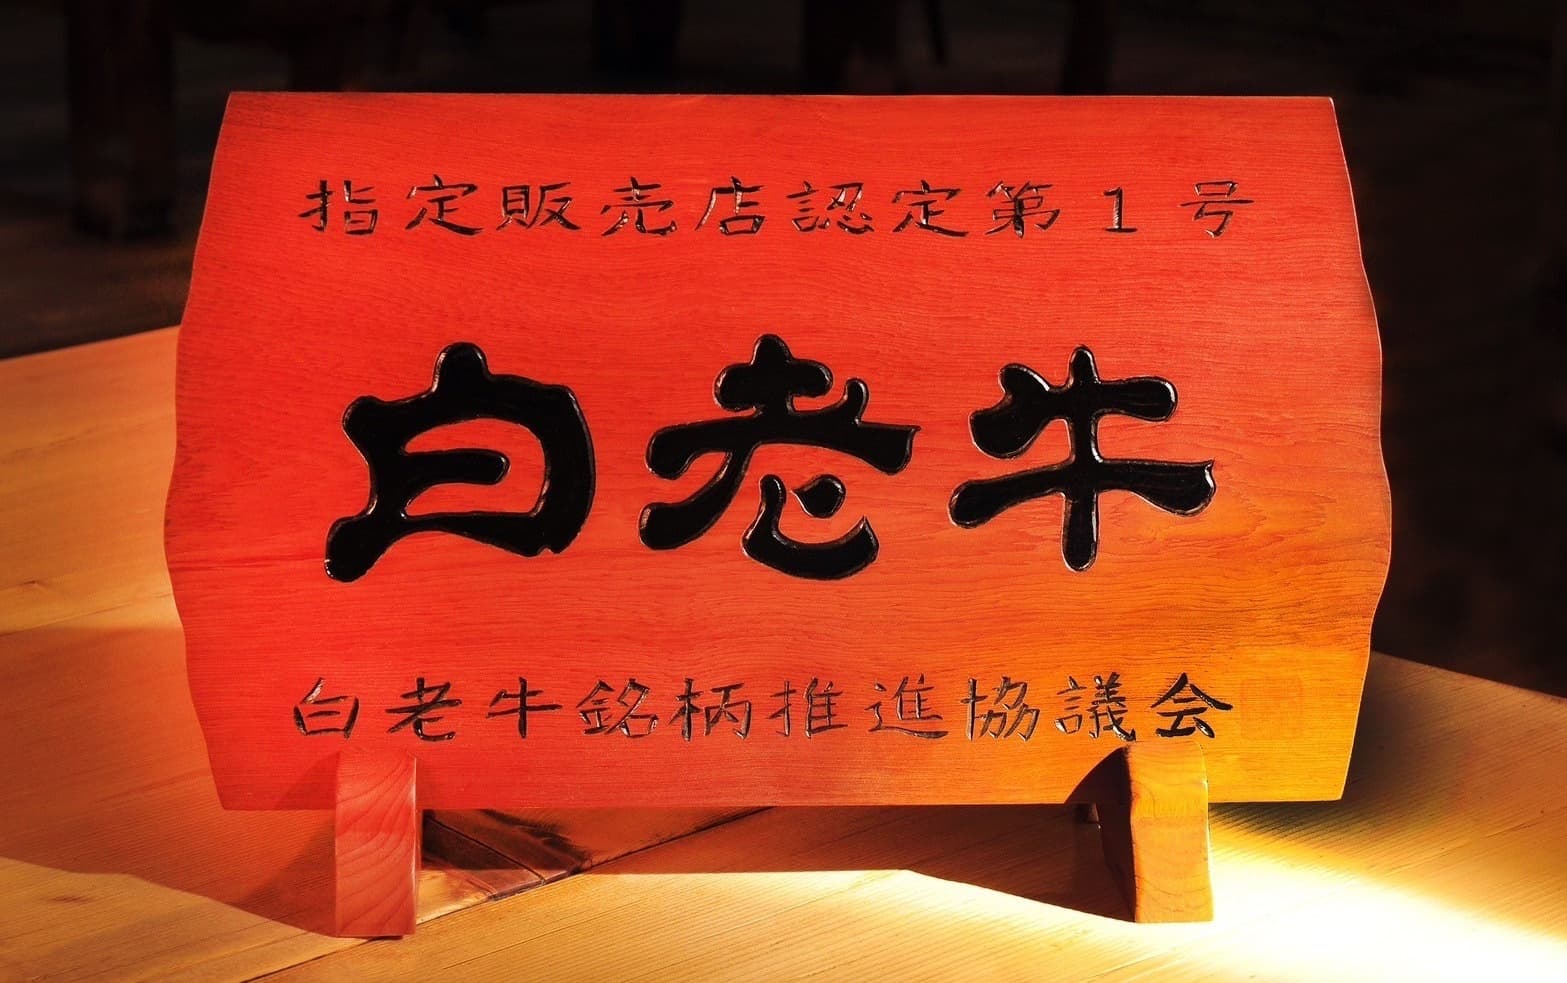 指定販売店認定第1号
白老牛
白老牛銘柄推進協議会